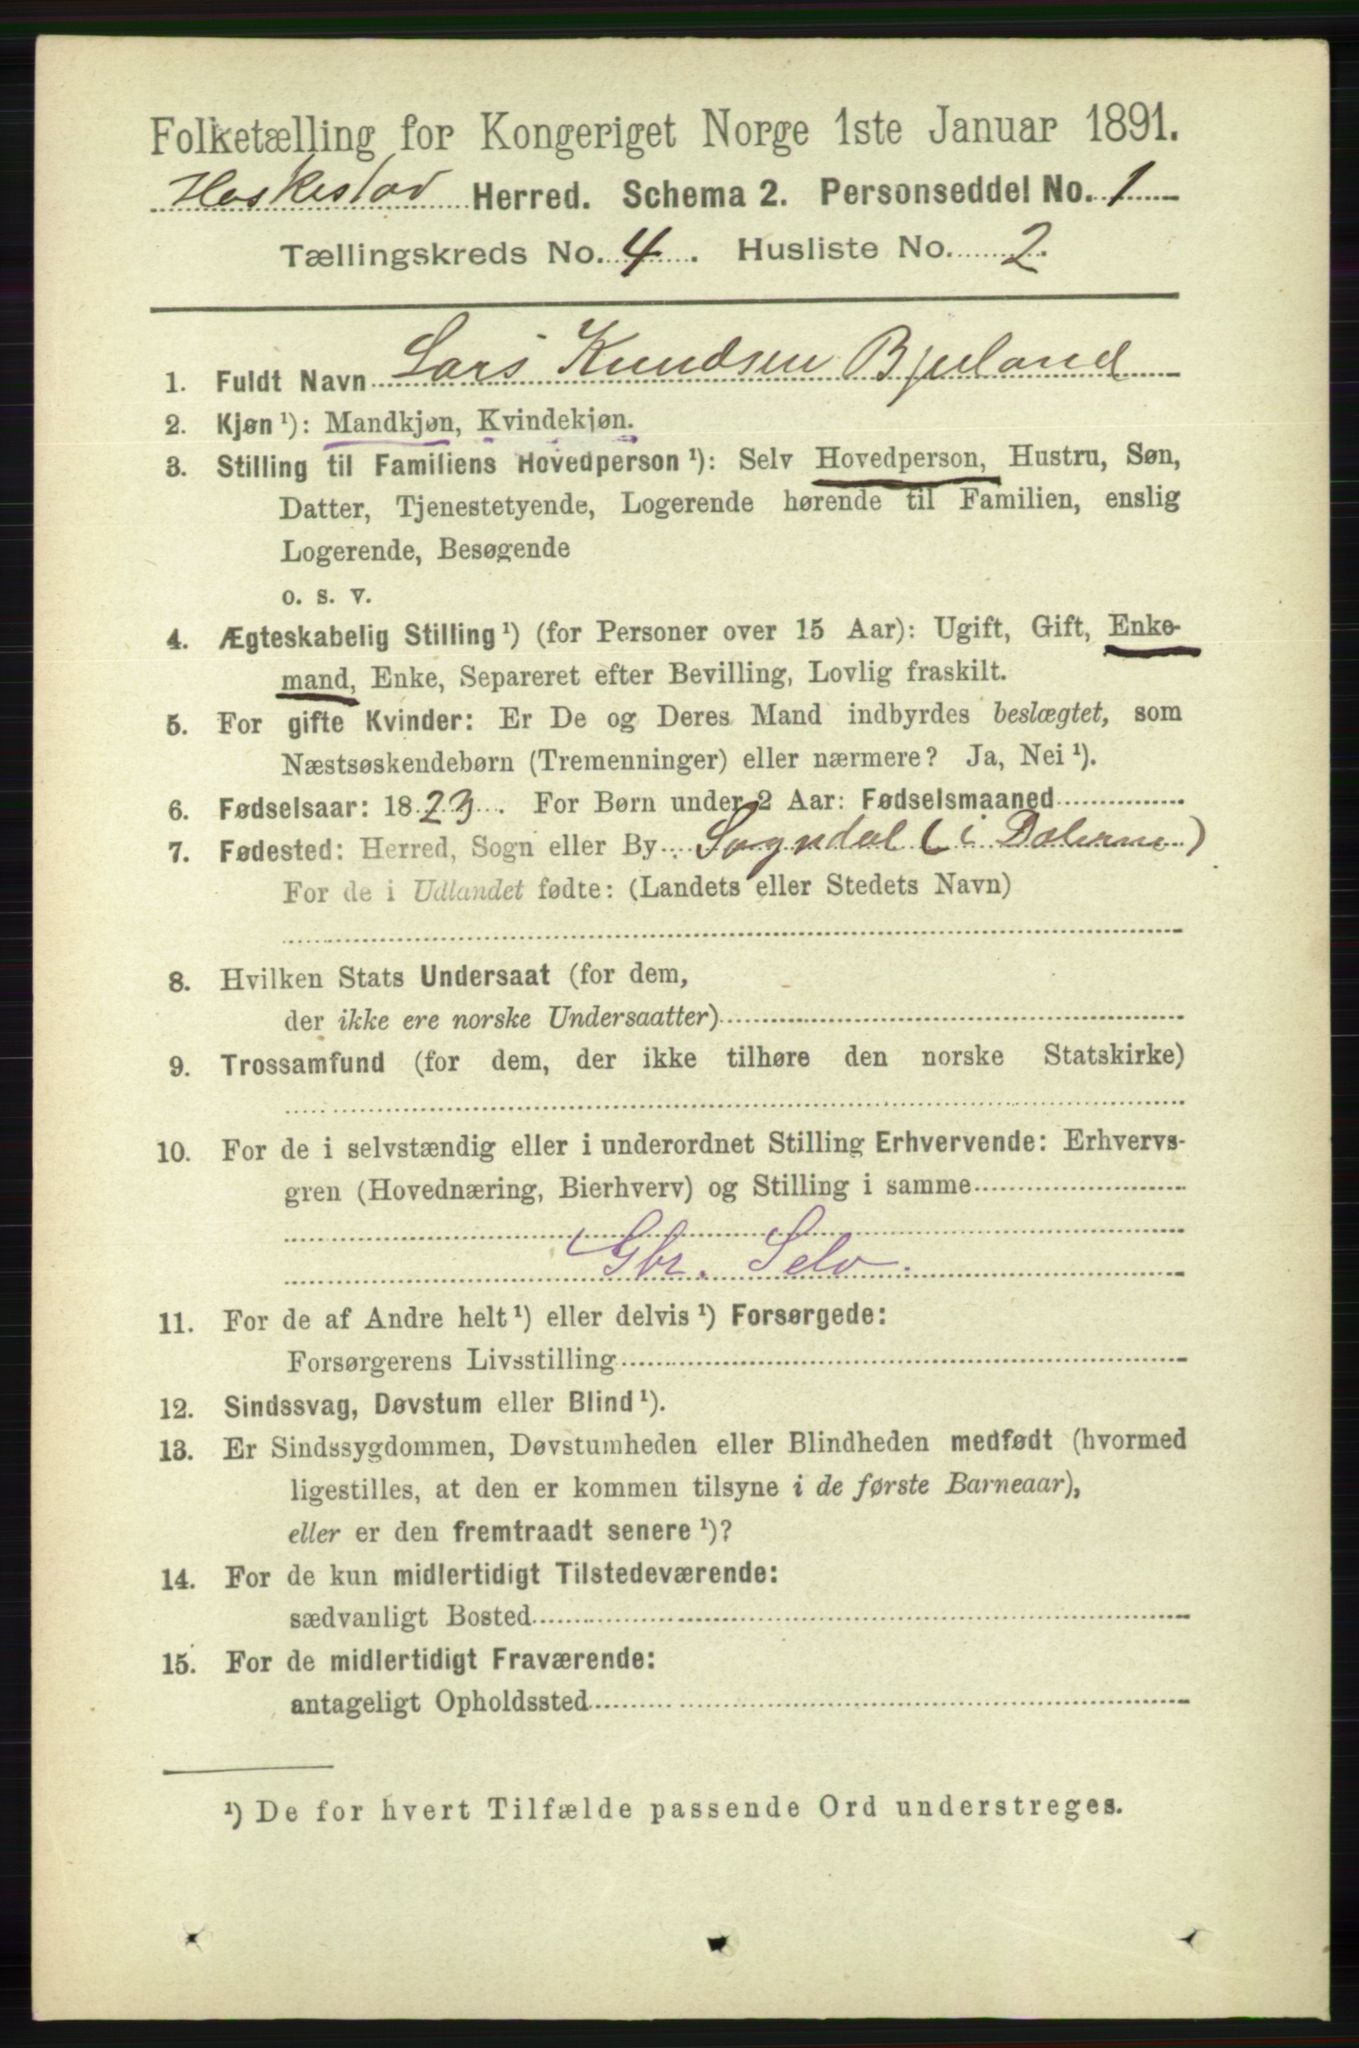 Folketælling for Kongeriget Norge 1ste Januar 1891.
Heskestad Herred. Schema 2. Personseddel No. 1
Tællingskreds No. 4. Husliste No. 2.
1. Fuldt Navn Lars Knudsen Bjuland
2. Kjøn¹): Mandkjøn, Kvindekjøn.
3. Stilling til Familiens Hovedperson¹): Selv Hovedperson, Hustru, Søn,
Datter, Tjenestetyende, Logerende hørende til Familien, enslig
Logerende, Besøgende
o. s. v.
4. Ægteskabelig Stilling¹) (for Personer over 15 Aar): Ugift, Gift, Enke-
mand, Enke, Separeret efter Bevilling, Lovlig fraskilt.
5. For gifte Kvinder: Er De og Deres Mand indbyrdes beslægtet, som
Næstsøskendebørn (Tremenninger) eller nærmere? Ja, Nei¹).
6. Fødselsaar: 1823. For Børn under 2 Aar: Fødselsmaaned
7. Fødested: Herred, Sogn eller By Sogndal (i Dalerne)
For de i Udlandet fødte: (Landets eller Stedets Navn)
8. Hvilken Stats Undersaat (for dem,
der ikke ere norske Undersaatter)
9. Trossamfund (for dem, der ikke tilhøre den norske Statskirke)
10. For de i selvstændig eller i underordnet Stilling Erhvervende: Erhvervs-
gren (Hovednæring, Bierhverv) og Stilling i samme
Gbr. Selv.
11. For de af Andre helt¹) eller delvis¹) Forsørgede:
Forsørgerens Livsstilling
12. Sindssvag, Døvstum eller Blind¹).
13. Er Sindssygdommen, Døvstumheden eller Blindheden medfødt (hvormed
ligestilles, at den er kommen tilsyne i de første Barneaar),
eller er den fremtraadt senere¹)?
14. For de kun midlertidigt Tilstedeværende:
sædvanligt Bosted
15. For de midlertidigt Fraværende:
antageligt Opholdssted
¹) De for hvert Tilfælde passende Ord understreges.